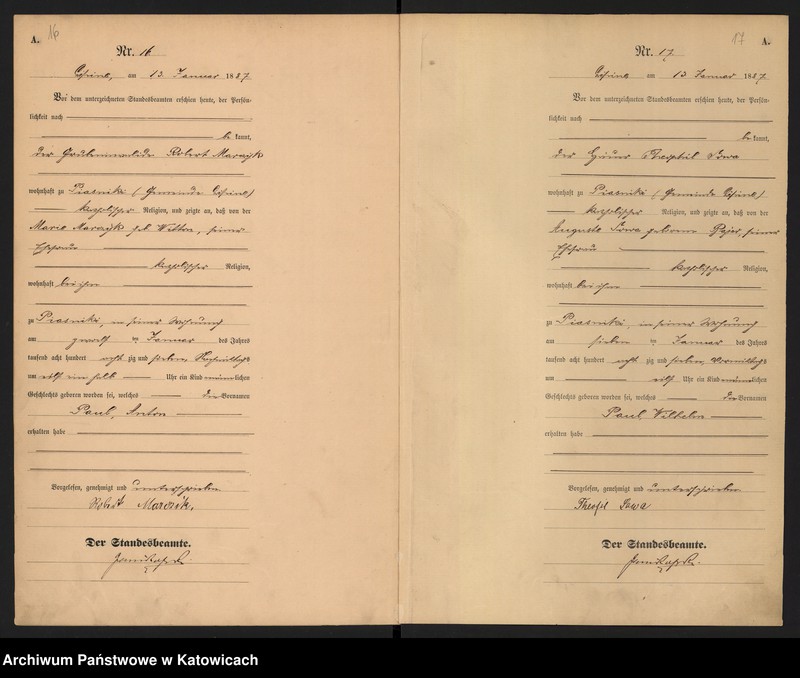 A. 16
Nr. 16
am 13. Januar 1887
Vor dem unterzeichneten Standesbeamten erschien heute, der Persön-
lichkeit nach
be kannt,
der Grubeninvalide Robert Marczyk
wohnhaft zu Piasniki (Gemeinde
katholischer Religion, und zeigte an, daß von der
Marie Marczyk geb. seiner
Ehefrau
katholischer Religion,
wohnhaft bei ihm
zu Piasniki, in seiner Wohnung
am zwölf ten Januar des Jahres
tausend acht hundert acht zig und sieben, Nachmittags
um elf ein halb Uhr ein Kind männliches
Geschlechts geboren worden sei, welches die Vornamen
Paul, Anton
erhalten habe
Vorgelesen, genehmigt und unterschrieben
Robert Marczik.
Der Standesbeamte.
17 A.
Nr. 17
am 13 Januar 1887.
Vor dem unterzeichneten Standesbeamten erschien heute, der Persön-
lichkeit nach
be kannt,
der Theophil Sowa
wohnhaft zu Piasniki (Gemeinde
katholischer Religion, und zeigte an, daß von der
Auguste Sowa geborene seiner
Ehefrau
katholischer Religion,
wohnhaft bei ihm
zu Piasniki, in seiner Wohnung
am sieben ten Januar des Jahres
tausend acht hundert acht zig und sieben, Vormittags
um elf Uhr ein Kind männliches
Geschlechts geboren worden sei, welches die Vornamen
Paul, Wilhelm
erhalten habe
Vorgelesen, genehmigt und unterschrieben
Theofil Sowa
Der Standesbeamte.
Archiwum Państwowe w Katowicach